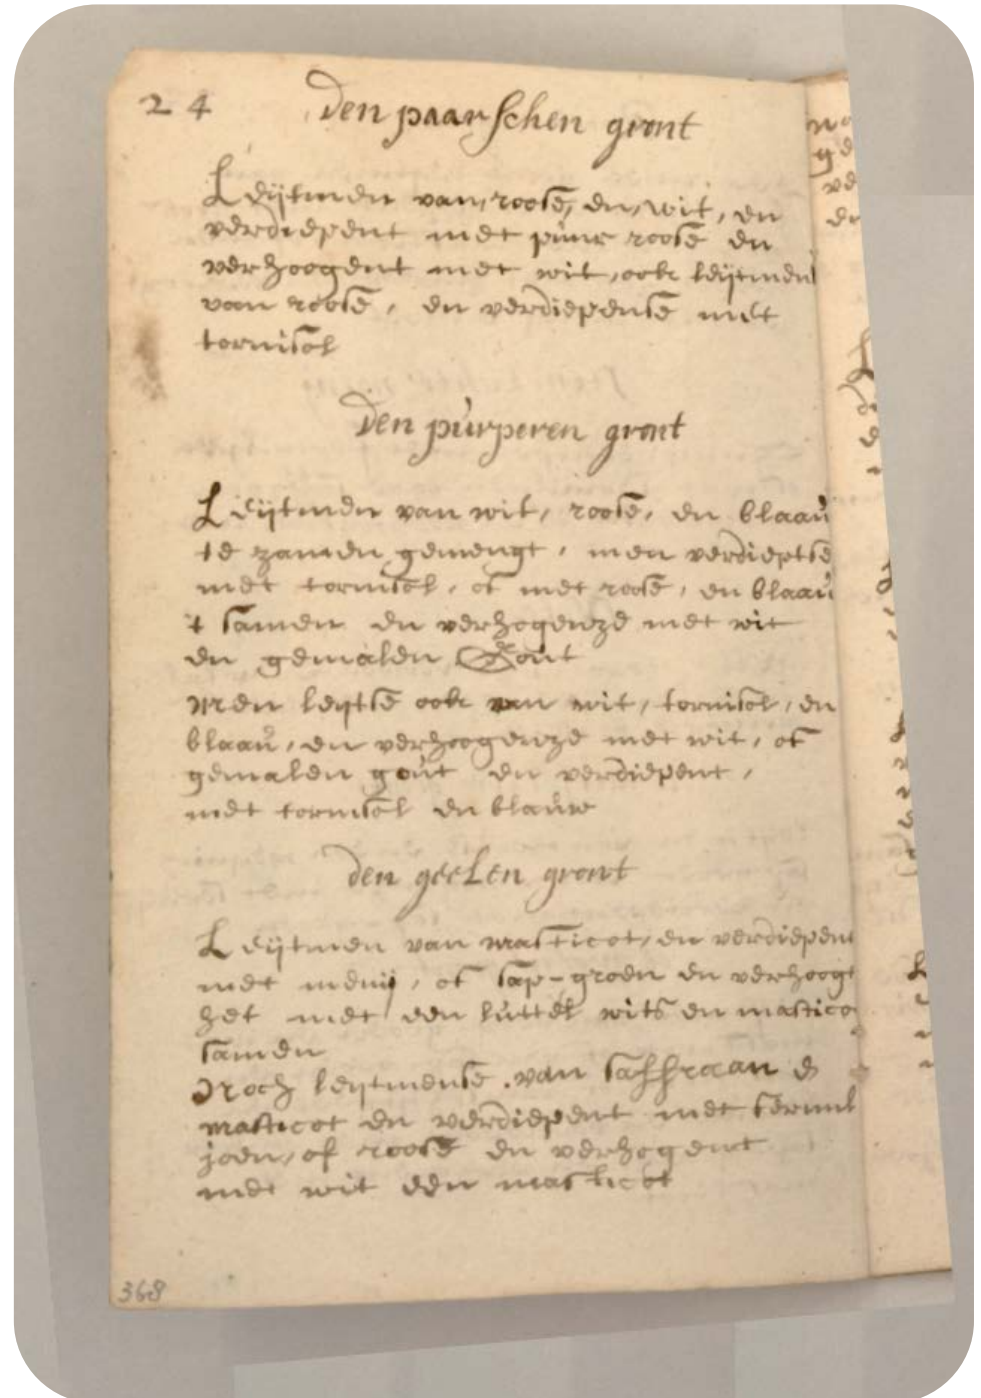 24
den paarschen gront
Leijtmen van, roose, en, wit, en
verdiepent met puur roose en
verhoogent met wit, ook leijtment
van roose, en verdiepense met
tornisol
den purperen gront
Leijtmen van wit, roose, en blaau
te zamen gemengt, men verdieptse
met tornisol, of met roose, en blaau
't samen en verhogenze met wit
en gemalen Gout
Men leijtse ook van wit, tornisol, en
blaau, en verhoogenze met wit, of
gemalen gout en verdiepent,
met tornisol en blauw
den geelen gront
Leijtmen van masticot, en verdiepent
met menij, of sap-groen en verhoogt
het met een luttel wits en mastico
samen
Noch leijtmense van saffraan &
masticot en verdiepent met fermil
joen, of roose en verhogent
met wit een masticot
368